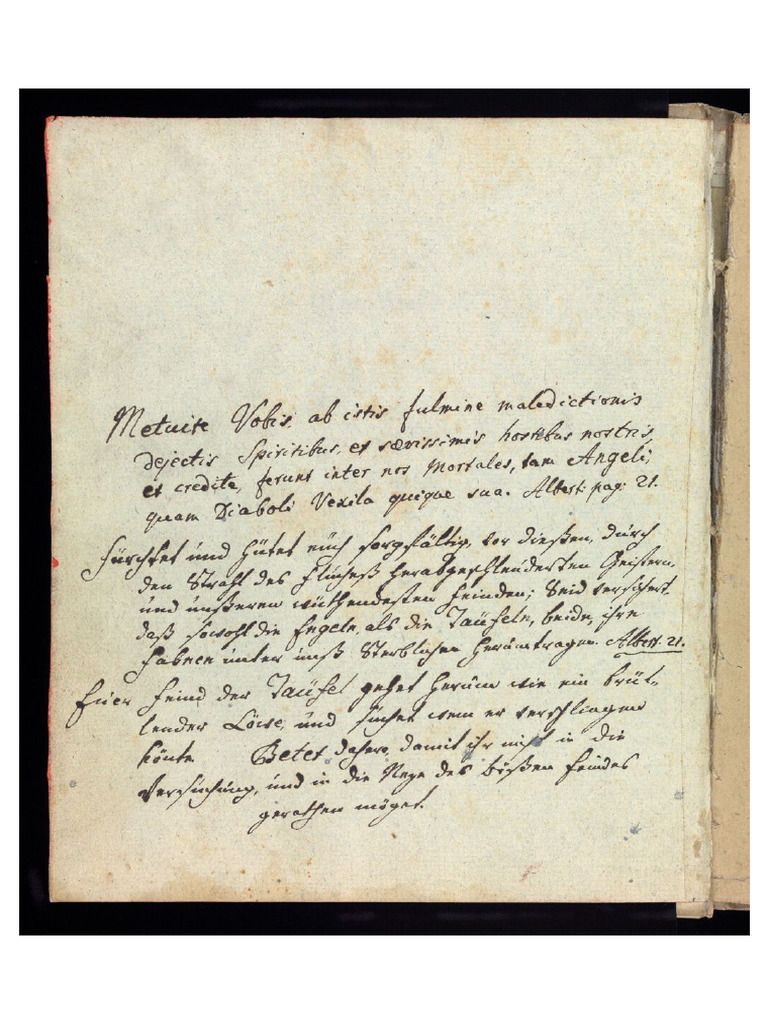 Metuite Vobis, ab istis fulmine maledictionis
dejectis Spiritibus, et sævissimis hostibus nostris,
et credite, ferunt inter nos Mortales, tam Angeli,
quam Diaboli Vexila quique sua. Albert: pag: 21.
Fürchtet und hütet euch sorgfältig, vor dießen, durch
den Strahl des Flucheß herabgeschlenderten Geistern,
und unßeren wüthendesten Feinden; Seid versichert
daß sowohl die Engeln, als die Täüfeln, beide, ihre
Fahnen unter unß Sterblichen herumtragen. Albert: 21.
Euer Feind der Täüfel gehet herum wie ein brül-
lender Löwe, und suchet wem er verschlingen
könte. Betet dahero, damit ihr nicht in die
Versuchung, und in die Neze des bößen Feindes
gerathen möget.